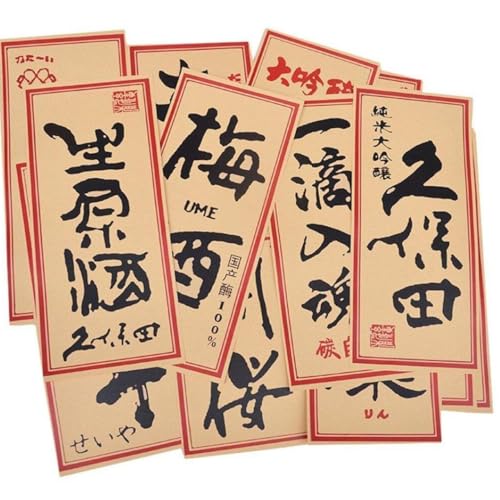 なた〜い
生原酒
久保田
梅
UME
酉
国产酶100%
大吟
一滴入魂
碳自
純米大吟醸
久保田
せいや
桜
りん